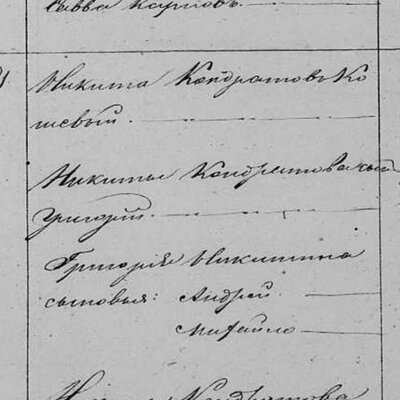 Савва Карповъ.
Никита Кондратовъ Ко
шевый.
Никиты Кондратова сынъ
Григорій.
Григорія Никитина
сыновья: Андрей
Михайло
Кондратова